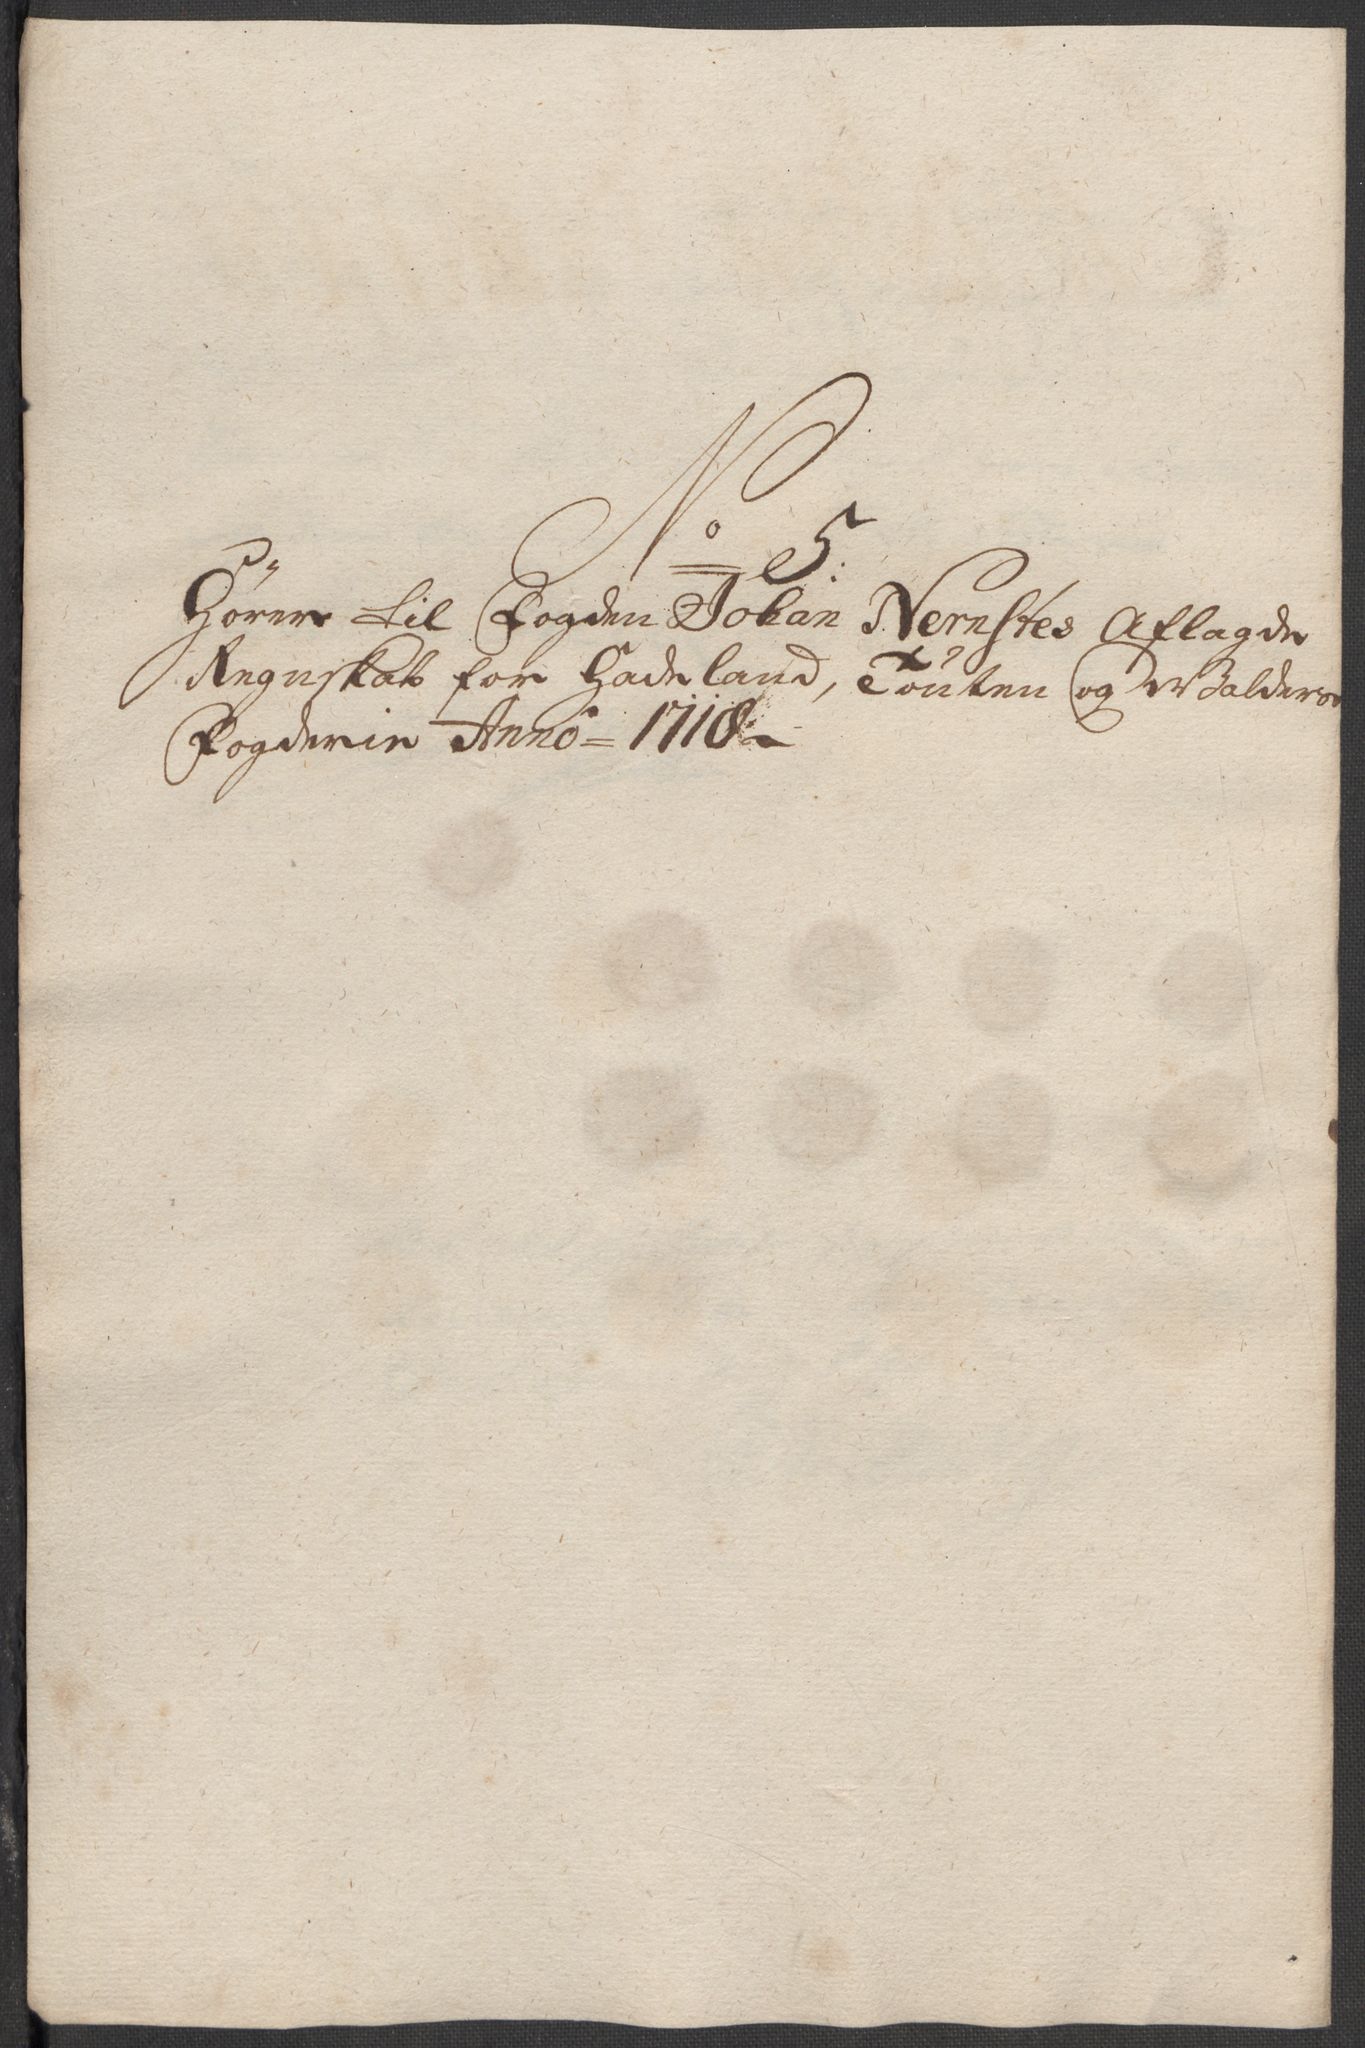 No 5:
Hörer til Fogden Johan Nernstes Aflagde
Regnskab for Hadeland, Toten og Walders
Fogderie Anno 1718